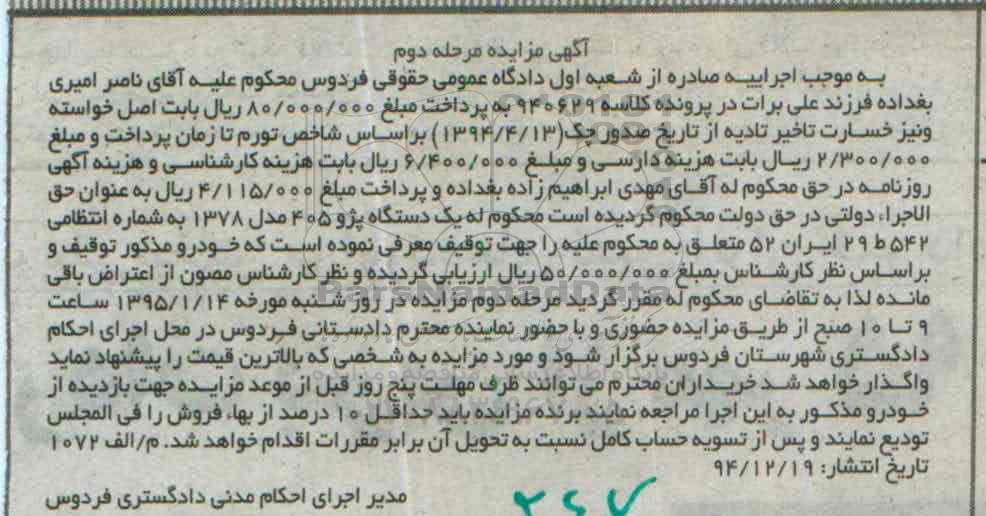 آگهی مزایده مرحله دوم
به موجب اجراییه صادره از شعبه اول دادگاه عمومی حقوقی فردوس محکوم علیه آقای ناصر امیری
بغداده فرزند علی برات در پرونده کلاسه ۹۴۰۶۲۹ به پرداخت مبلغ ۸۰/۰۰۰/۰۰۰ ریال بابت اصل خواسته
ونیز خسارت تاخیر تادیه از تاریخ صدور چک(۱۳۹۴/۴/۱۳) براساس شاخص تورم تا زمان پرداخت و مبلغ
۲/۳۰۰/۰۰۰ ریال بابت هزینه دارسی و مبلغ ۶/۴۰۰/۰۰۰ ریال بابت هزینه کارشناسی و هزینه آگهی
روزنامه در حق محکوم له آقای مهدی ابراهیم زاده بغداده و پرداخت مبلغ ۴/۱۱۵/۰۰۰ ریال به عنوان حق
الاجراء دولتی در حق دولت محکوم گردیده است محکوم له یک دستگاه پژو ۴۰۵ مدل ۱۳۷۸ به شماره انتظامی
۵۴۲ ط ۲۹ ایران ۵۲ متعلق به محکوم علیه را جهت توقیف معرفی نموده است که خودرو مذکور توقیف و
براساس نظر کارشناس بمبلغ ۵۰/۰۰۰/۰۰۰ ریال ارزیابی گردیده و نظر کارشناس مصون از اعتراض باقی
مانده لذا به تقاضای محکوم له مقرر گردید مرحله دوم مزایده در روز شنبه مورخه ۱۳۹۵/۱/۱۴ ساعت
۹ تا ۱۰ صبح از طریق مزایده حضوری و با حضور نماینده محترم دادستانی فردوس در محل اجرای احکام
دادگستری شهرستان فردوس برگزار شود و مورد مزایده به شخصی که بالاترین قیمت را پیشنهاد نماید
واگذار خواهد شد خریداران محترم می توانند ظرف مهلت پنج روز قبل از موعد مزایده جهت بازدیده از
خودرو مذکور به این اجرا مراجعه نمایند برنده مزایده باید حداقل ۱۰ درصد از بهاء فروش را فی المجلس
تودیع نمایند و پس از تسویه حساب کامل نسبت به تحویل آن برابر مقررات اقدام خواهد شد. م/الف ۱۰۷۲
تاریخ انتشار: ۹۴/۱۲/۱۹
مدیر اجرای احکام مدنی دادگستری فردوس
ParsNamadData